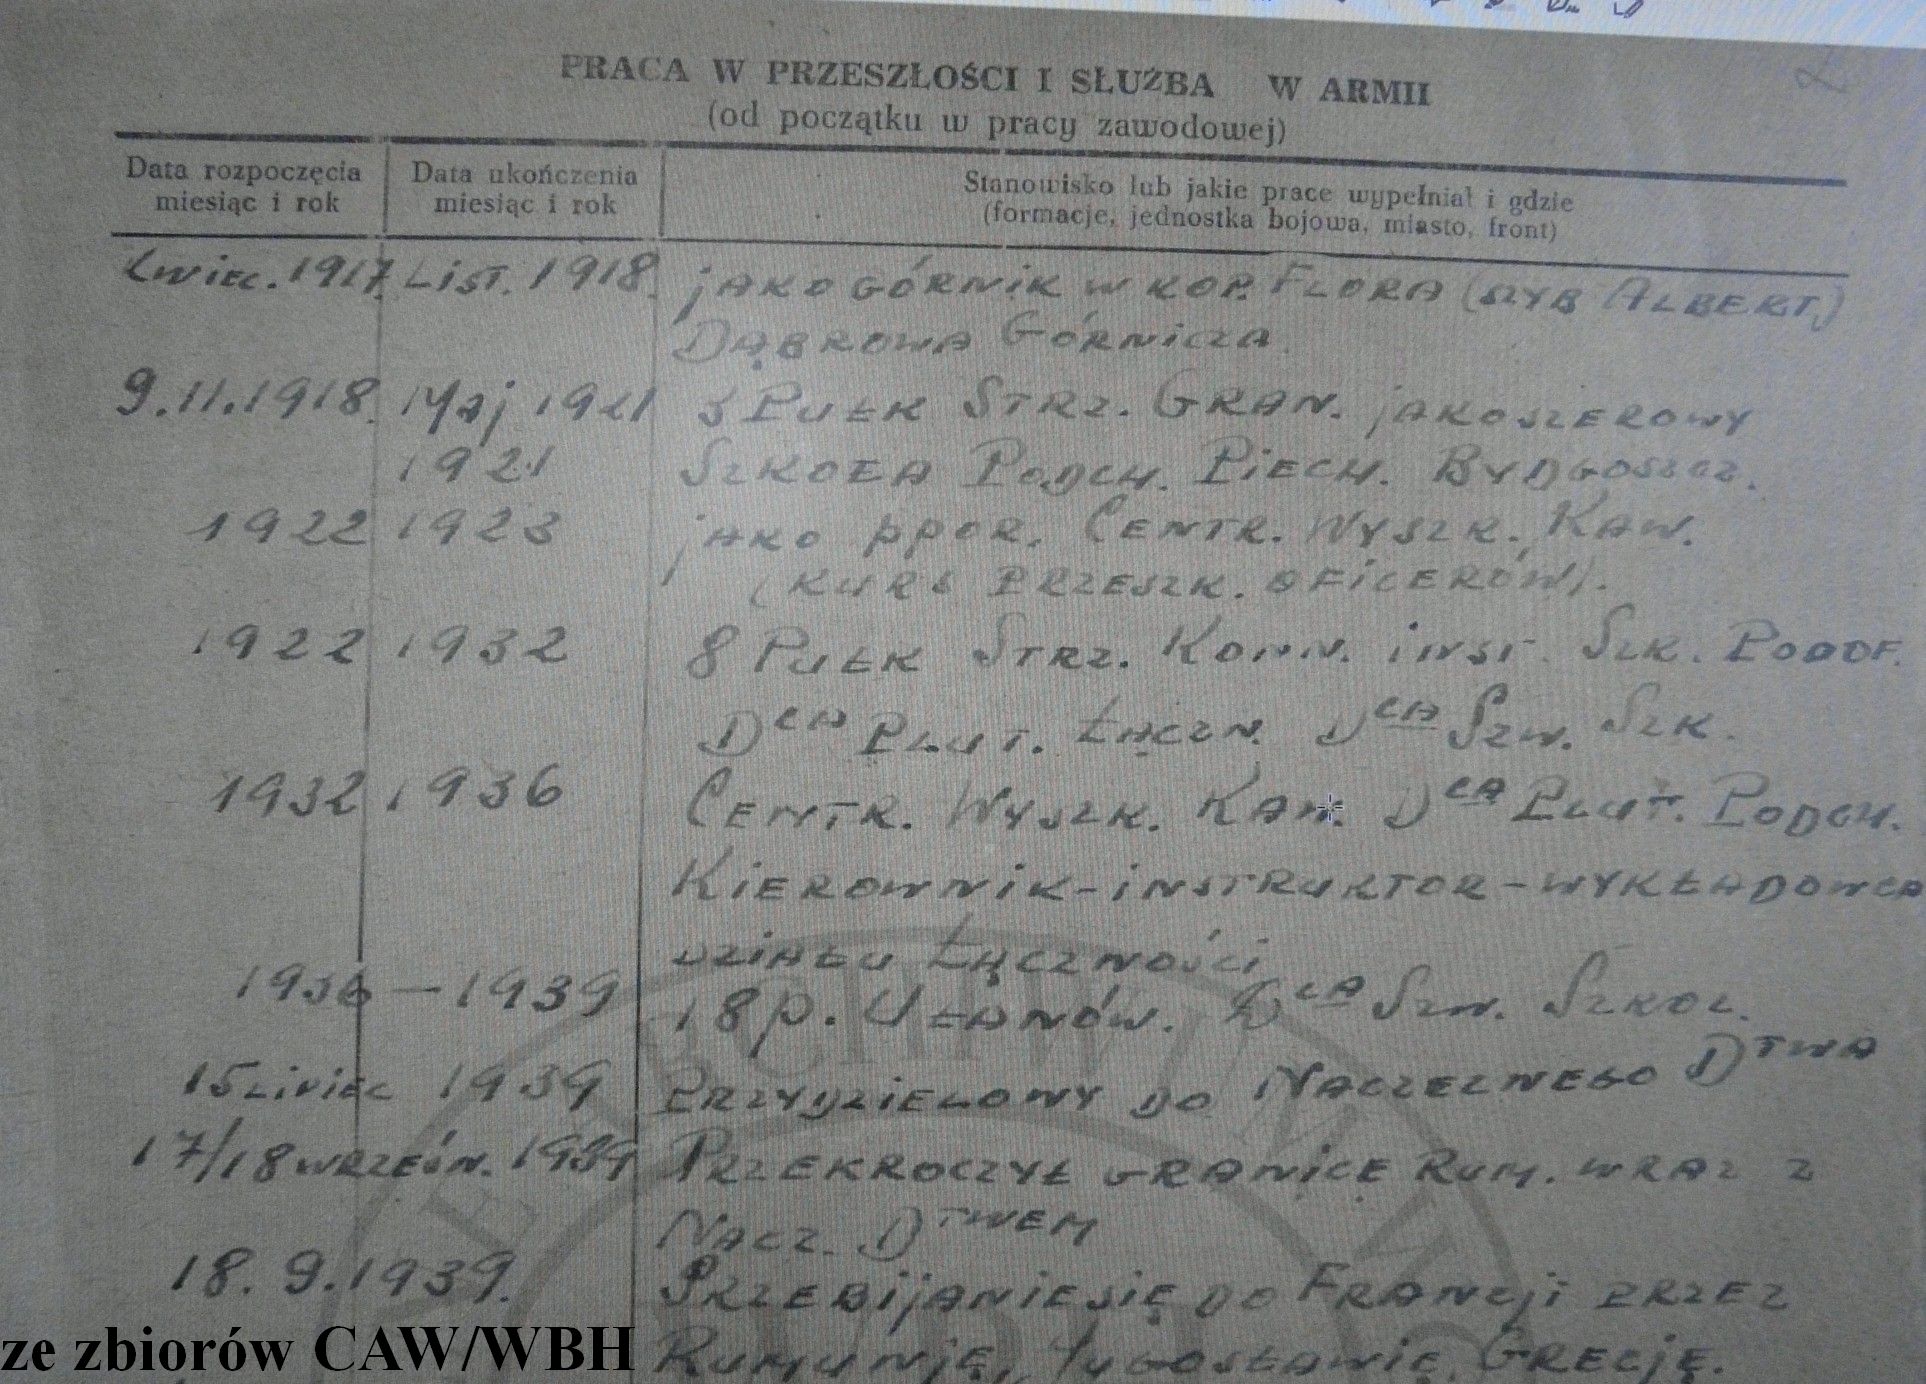 PRACA W PRZESZŁOŚCI I SŁUŻBA W ARMII
(od początku w pracy zawodowej)
Data rozpoczęcia miesiąc i rok
Data ukończenia miesiąc i rok
Stanowisko lub jakie prace wypełniał i gdzie
(formacje, jednostka bojowa, miasto, front)
1917. LIST. 1918. JAKO GÓRNIK W KOP. FLORA (SZYB ALBERT)
DĄBROWA GÓRNICZA
9.11.1918. MAJ 1921 3 PUŁK STRZ. GRAN. JAKO SZEROWY
1921 SZKOŁA PODCH. PIECH. BYDGOSZCZ.
1922 1923 JAKO PPOR. CENTR. WYSZK. KAW.
(KURS PRZESZK. OFICERÓW).
1922 1932 8 PUŁK STRZ. KONN. INST. SZK. PODOF.
DCA PLUT. ŁĄCZN. DCA SZW. SZK.
1932 1936 CENTR. WYSZK. KAW. DCA PLUT. PODCH.
KIEROWNIK-INSTRUKTOR-WYKŁADOWCA
DZIAŁU ŁĄCZNOŚCI
1936 — 1939 18 p. UŁANÓW. DCA SZW. SZKOL.
15 LIPIEC 1939 PRZYDZIELONY DO NACZELNEGO DTWA
17/18 WRZEŚN. 1939 PRZEKROCZYŁ GRANICĘ RUM. WRAZ Z
NACZ. DTWEM
18.9.1939. PRZEBIJANIE SIĘ DO FRANCJI PRZEZ
RUMUNJĘ, JUGOSŁAWIĘ, GRECJĘ.
ze zbiorów CAW/WBH